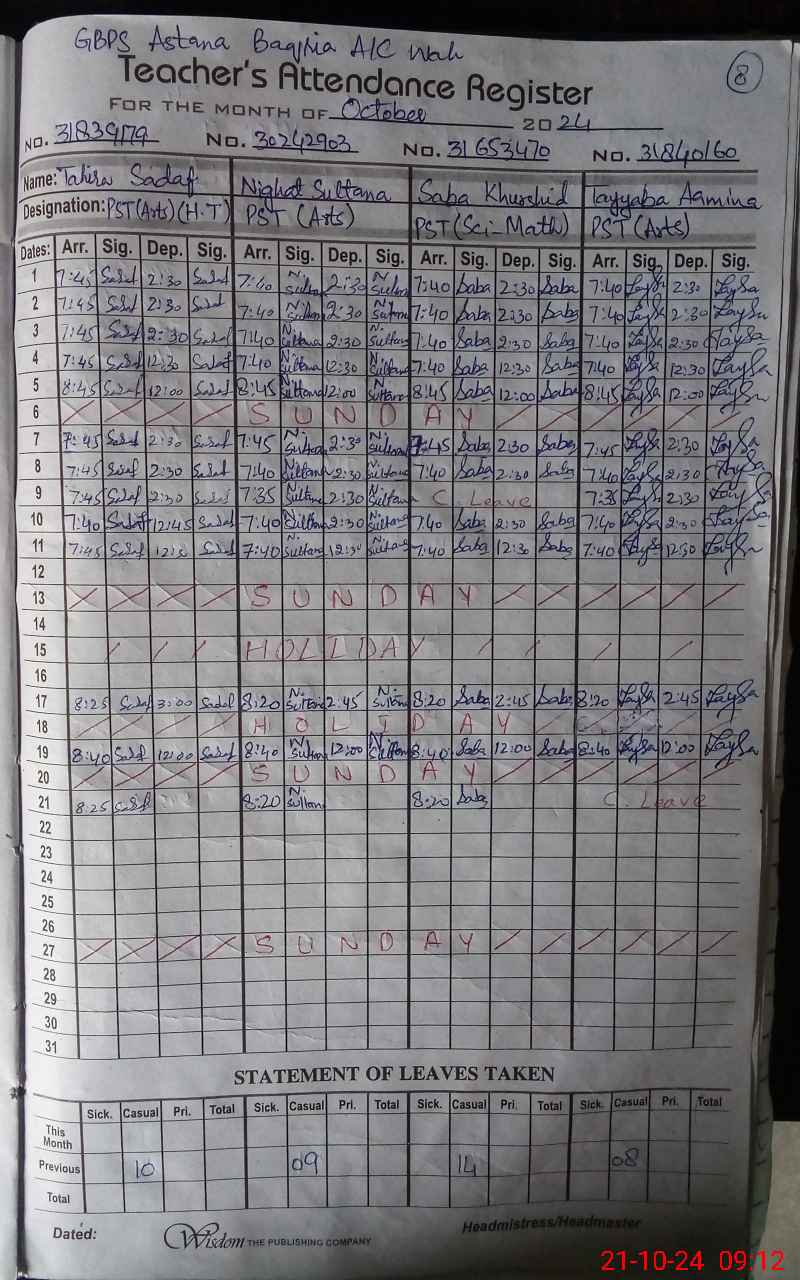 GBPS Astana Bagjria A/C Wah
8
Teacher's Attendance Register
FOR THE MONTH OF October 2024
NO. 31839179 NO. 30242903 NO. 31653470 NO. 31840160
Name: Tahira Sadaf Nighat Sultana Saba Khurshid Tayyaba Aamina
Designation: PST(Arts)(H.T) PST (Arts) PST(Sci-Math) PST(Arts)
Dates: Arr. Sig. Dep. Sig. Arr. Sig. Dep. Sig. Arr. Sig. Dep. Sig. Arr. Sig. Dep. Sig.
1 7:45 Sadaf 2:30 Sadaf 7:40 N. Sultana 2:30 N. Sultana 7:40 Saba 2:30 Saba 7:40 TaySa 2:30 TaySa
2 7:45 Sadaf 2:30 Sadaf 7:40 N. Sultana 2:30 N. Sultana 7:40 Saba 2:30 Saba 7:40 TaySa 2:30 TaySa
3 7:45 Sadaf 2:30 Sadaf 7:40 N. Sultana 2:30 N. Sultana 7:40 Saba 2:30 Saba 7:40 TaySa 2:30 TaySa
4 7:45 Sadaf 12:30 Sadaf 7:40 N. Sultana 12:30 N. Sultana 7:40 Saba 12:30 Saba 7:40 TaySa 12:30 TaySa
5 8:45 Sadaf 12:00 Sadaf 8:45 N. Sultana 12:00 N. Sultana 8:45 Saba 12:00 Saba 8:45 TaySa 12:00 TaySa
6 SUNDAY
7 7:45 Sadaf 2:30 Sadaf 7:45 N. Sultana 2:30 N. Sultana 7:45 Saba 2:30 Saba 7:45 TaySa 2:30 TaySa
8 7:45 Sadaf 2:30 Sadaf 7:40 N. Sultana 2:30 N. Sultana 7:40 Saba 2:30 Saba 7:40 TaySa 2:30 TaySa
9 7:45 Sadaf 2:30 Sadaf 7:35 N. Sultana 2:30 N. Sultana C. Leave 7:35 TaySa 2:30 TaySa
10 7:40 Sadaf 12:45 Sadaf 7:40 N. Sultana 2:30 N. Sultana 7:40 Saba 2:30 Saba 7:40 TaySa 2:30 TaySa
11 7:45 Sadaf Sadaf 7:40 N. Sultana 12:30 N. Sultana 7:40 Saba 12:30 Saba 7:40 TaySa 12:30 TaySa
12
13 SUNDAY
14
15 HOLIDAY
16
17 8:25 Sadaf 3:00 Sadaf 8:20 N. Sultana 2:45 N. Sultana 8:20 Saba 2:45 Saba 8:20 TaySa 2:45 TaySa
18 HOLIDAY
19 8:40 Sadaf 12:00 Sadaf 8:40 N. Sultana 12:00 N. Sultana 8:40 Saba 12:00 Saba 8:40 TaySa 12:00 TaySa
20 SUNDAY
21 8:25 Sadaf 8:20 N. Sultana 8:20 Saba C. Leave
22
23
24
25
26
27 SUNDAY
28
29
30
31
STATEMENT OF LEAVES TAKEN
Sick. Casual Pri. Total Sick. Casual Pri. Total Sick. Casual Pri. Total Sick. Casual Pri. Total
This Month
Previous 10 09 14 08
Total
Dated: Wisdom THE PUBLISHING COMPANY Headmistress/Headmaster
21-10-24 09:12